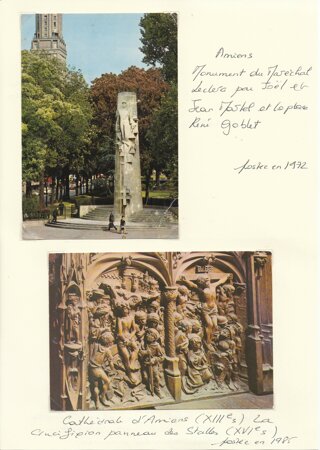 Amiens
Monument du Maréchal
Leclerc par Joël et
Jean Martel et la place
René Goblet
postée en 1972
Cathédrale d'Amiens (XIIIes) La
Crucifixion panneau des Stalles (XVIes)
postée en 1985